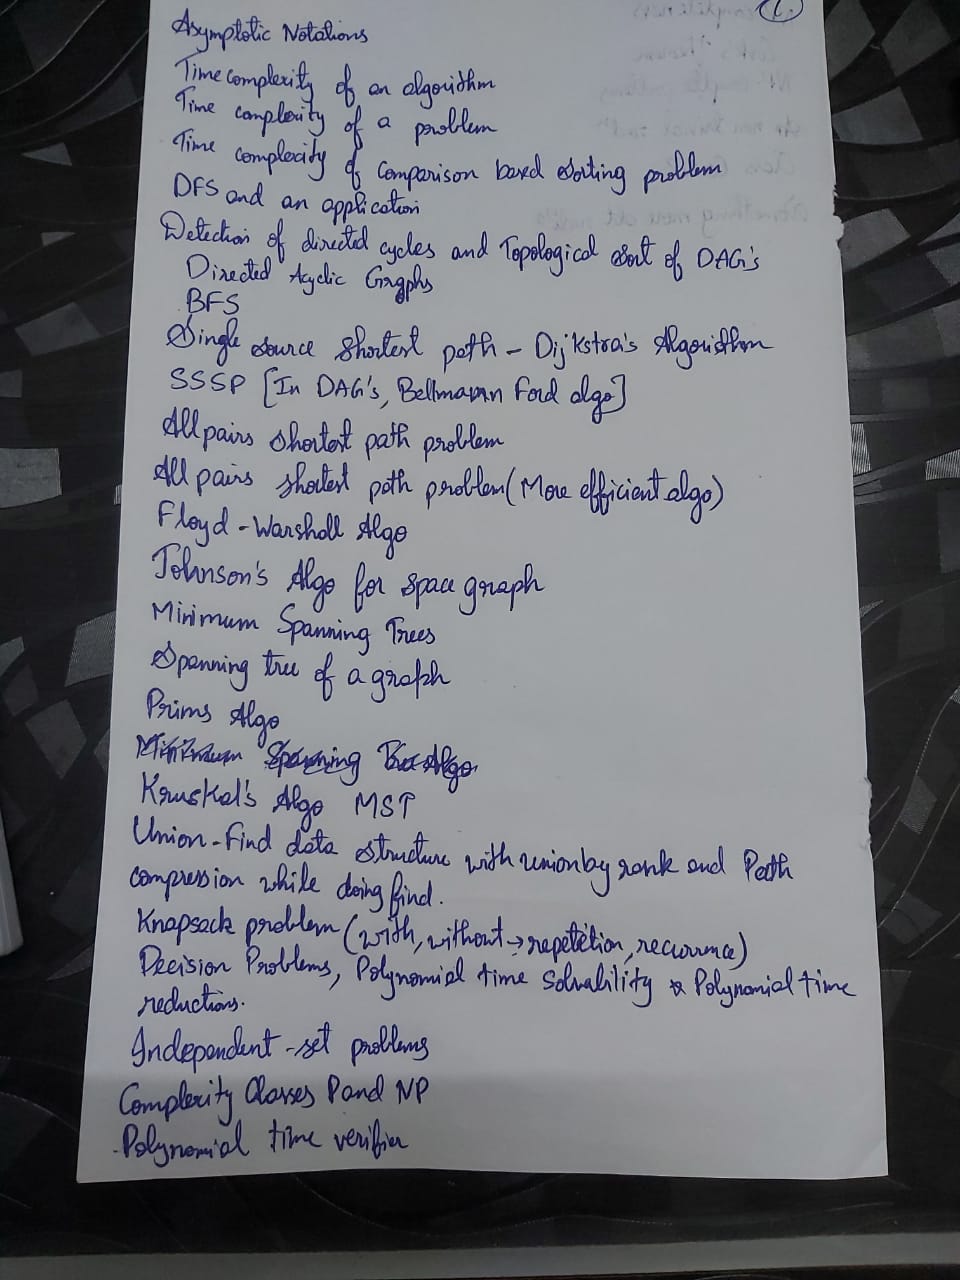 Asymptotic Notations
Time complexity of an algorithm
Time complexity of a problem
Time complexity of comparison based sorting problem
DFS and an application
Detection of directed cycles and Topological sort of DAG's
Directed Acyclic Graphs
BFS
Single source shortest path - Dijkstra's Algorithm
SSSP [In DAG's, Bellmann Ford algo]
All pairs shortest path problem
All pairs shortest path problem (More efficient algo)
Floyd - Warshall Algo
Johnson's Algo for space graph
Minimum Spanning Trees
Spanning tree of a graph
Prims Algo
Minimum Spanning Tree Algo
Kruskal's Algo MST
Union-Find data structure with union by rank and Path
compression while doing find.
Knapsack problem (with, without → repetition, recurrence)
Decision Problems, Polynomial time Solvability & Polynomial time
reductions.
Independent-set problems
Complexity Classes P and NP
Polynomial time verifier